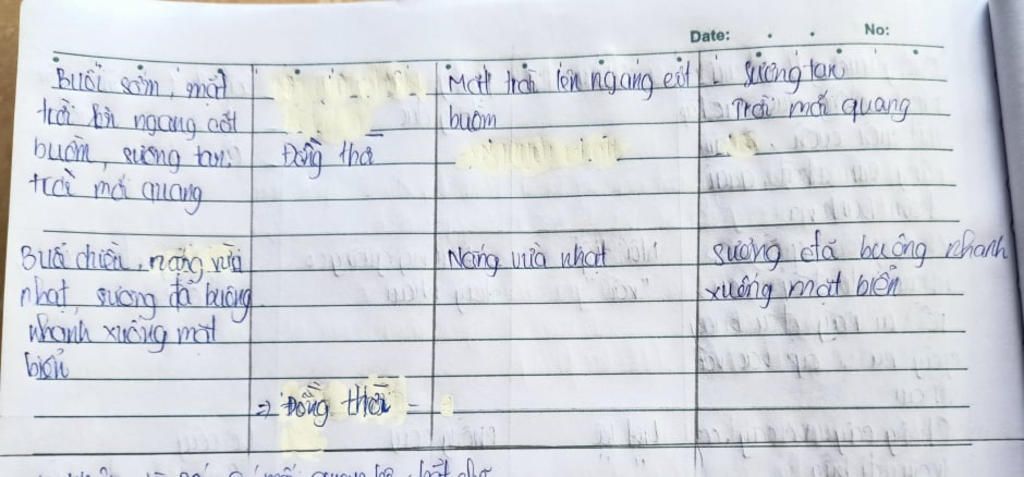 Date: . . No:
Buổi sớm, mặt
trời lên ngang cột
buồm, sương tan,
trời mới quang
Đồng thời
Mặt trời lên ngang cột
buồm
Sương tan
Trời mới quang
Buổi chiều, nắng vừa
nhạt, sương đã buông
nhanh xuống mặt
biển
=> Đồng thời
Nắng vừa nhạt
sương đã buông nhanh
xuống mặt biển